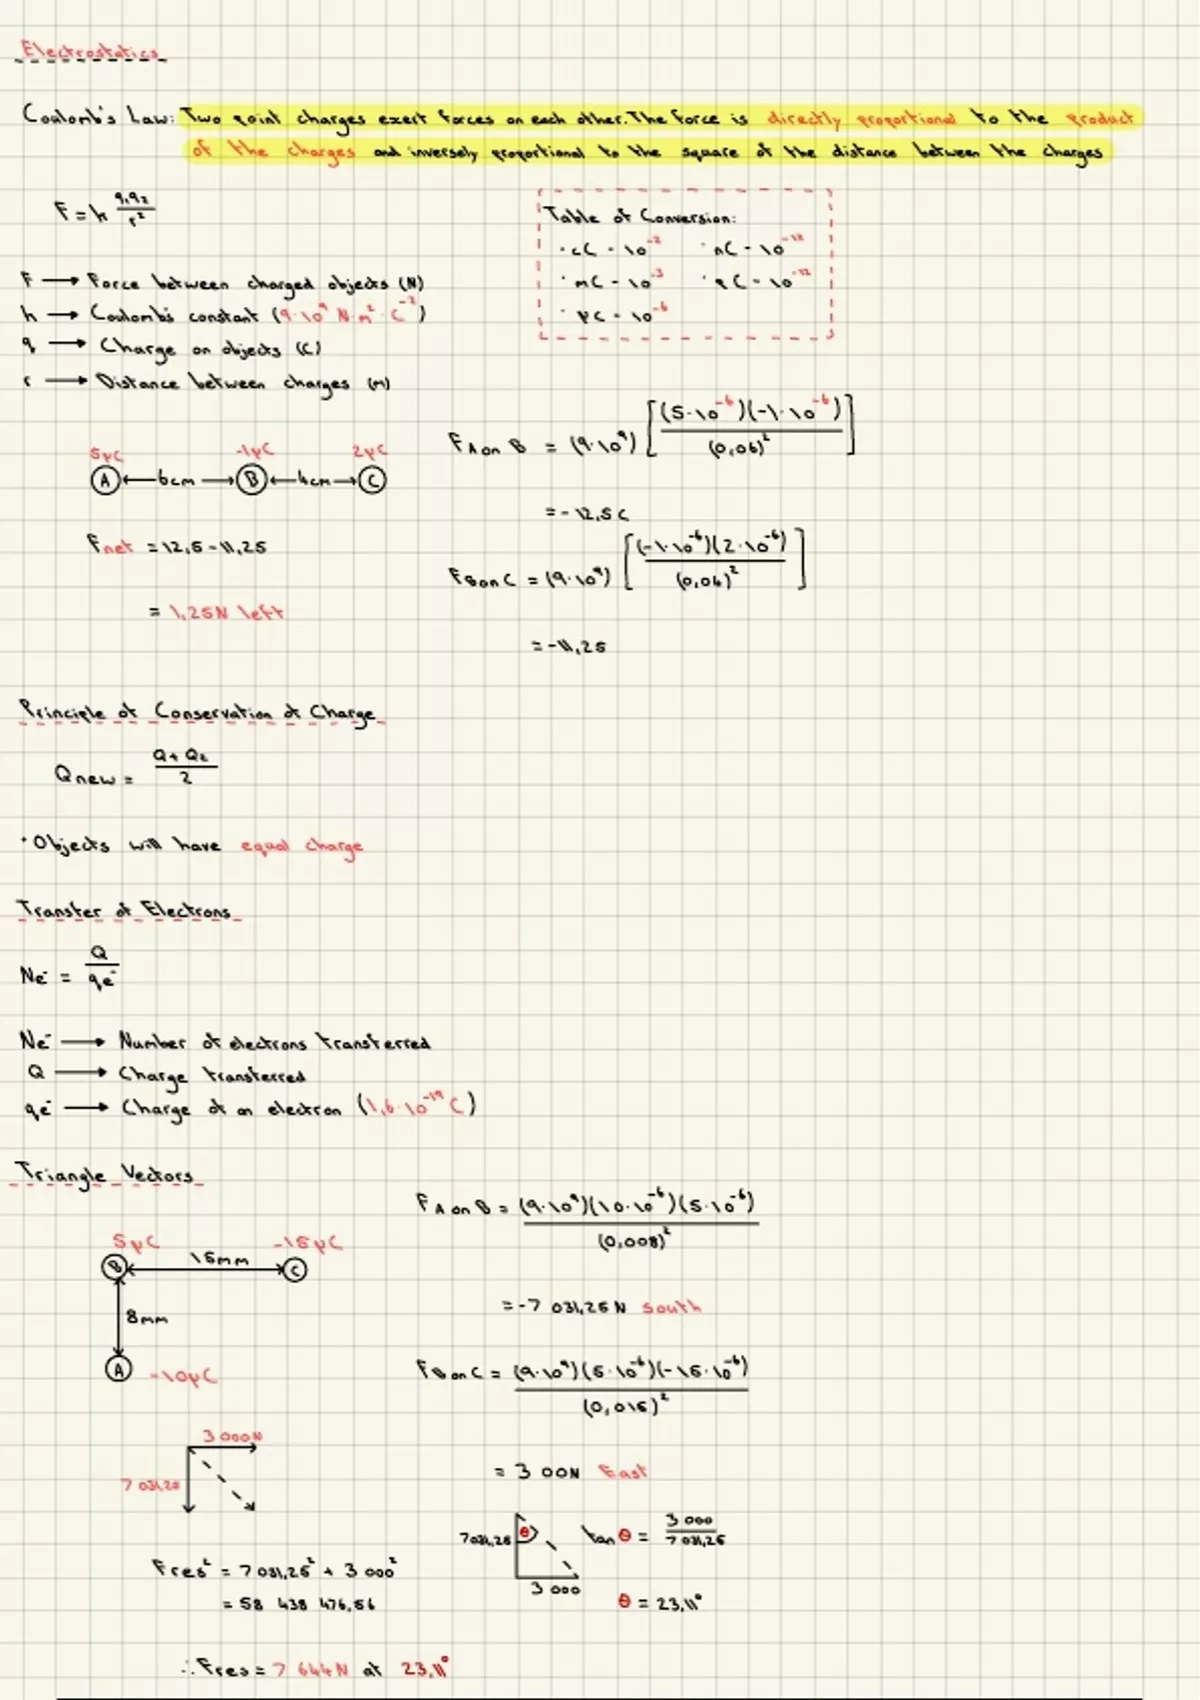 Electrostatics
Coulomb's Law: Two point charges exert forces on each other. The force is directly proportional to the product
of the charges and inversely proportional to the square of the distance between the charges
F = k q₁q₂/r²
Table of Conversion:
· cC - 10⁻² · nC - 10
· mC - 10⁻³ · pC - 10⁻¹²
· μC - 10⁻⁶
F → Force between charged objects (N)
k → Coulomb's constant (9·10⁹ N·m²·C⁻²)
q → Charge on objects (C)
r → Distance between charges (m)
5μC -1μC 2μC
A ←6cm→ B ←4cm→ C
F A on B = (9·10⁹) [(5·10⁻⁶)(-1·10⁻⁶)/(0,06)²]
= -12,5 C
Fnet = 12,5 - 11,25
= 1,25N left
F B on C = (9·10⁹) [(-1·10⁻⁶)(2·10⁻⁶)/(0,04)²]
= -11,25
Principle of Conservation of Charge
Qnew = Q+Q₂/2
· Objects will have equal charge
Transfer of Electrons
Ne⁻ = Q/qe⁻
Ne⁻ → Number of electrons transferred
Q → Charge transferred
qe⁻ → Charge of an electron (1,6·10⁻¹⁹ C)
Triangle Vectors
5μC -15μC
B 15mm C
8mm
A -10μC
F A on B = (9·10⁹)(10·10⁻⁶)(5·10⁻⁶)/(0,008)²
= -7 031,25N South
F B on C = (9·10⁹)(5·10⁻⁶)(-15·10⁻⁶)/(0,015)²
= 3 00N East
3 000N
7 031,25
7031,25 θ
3 000
tan θ = 3 000/7 031,25
θ = 23,11°
Fres² = 7 031,25² + 3 000²
= 58 438 476,56
∴ Fres = 7 644N at 23,11°